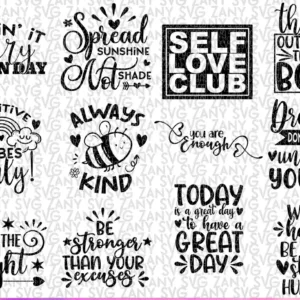 IN' IT
NDAY
Spread
SUNSHINE
Not SHADE
SELF
LOVE
CLUB
OUT
THE
BO
ITIVE
BES
ly!
ALWAYS
KIND
you are
Enough
Dre
DON
un
YOU
THE
ght
BE
stronger
THAN YOUR
excuses
TODAY
is a great day
to have a
GREAT
DAY
W
HA
BE
HU